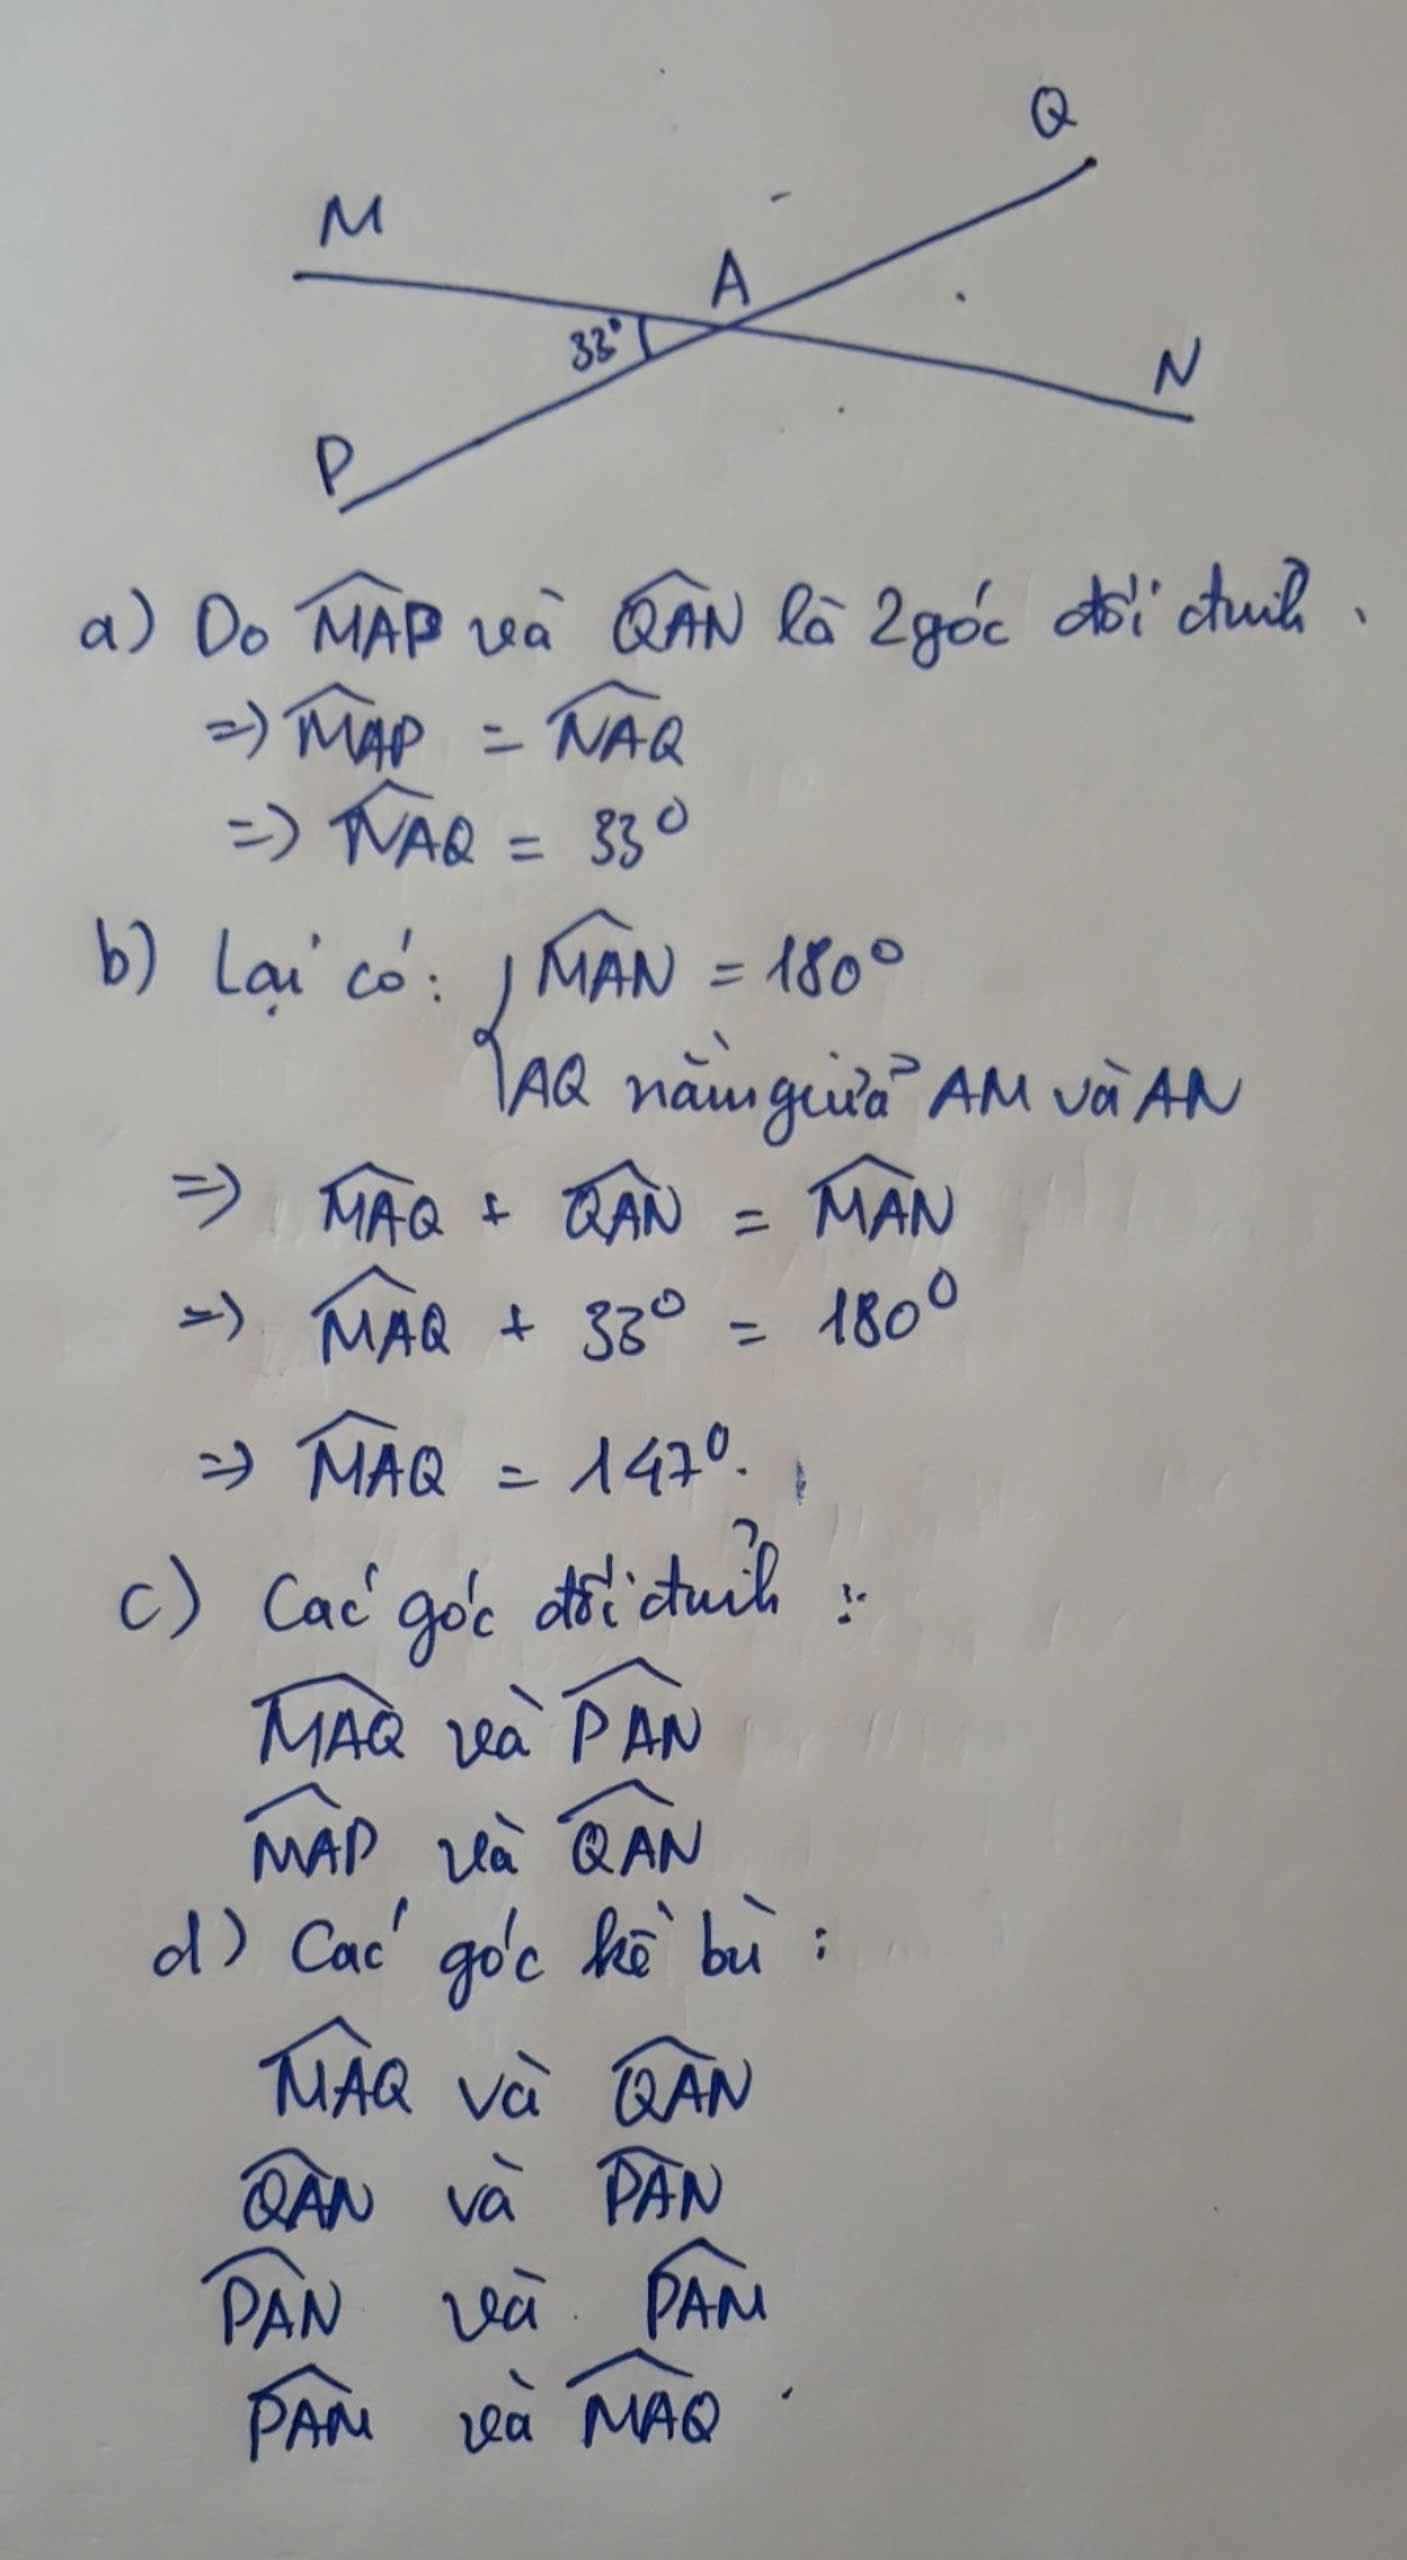 Q
M
A
33°
N
P
a) Do M̂AP và Q̂AN là 2 góc đối đỉnh.
=> M̂AP = N̂AQ
=> N̂AQ = 33°
b) Lại có: { M̂AN = 180°
AQ nằm giữa AM và AN
=> M̂AQ + Q̂AN = M̂AN
=> M̂AQ + 33° = 180°
=> M̂AQ = 147°.
c) Các góc đối đỉnh :
M̂AQ và P̂AN
M̂AP và Q̂AN
d) Các góc kề bù :
M̂AQ và Q̂AN
Q̂AN và P̂AN
P̂AN và P̂AM
P̂AM và M̂AQ.